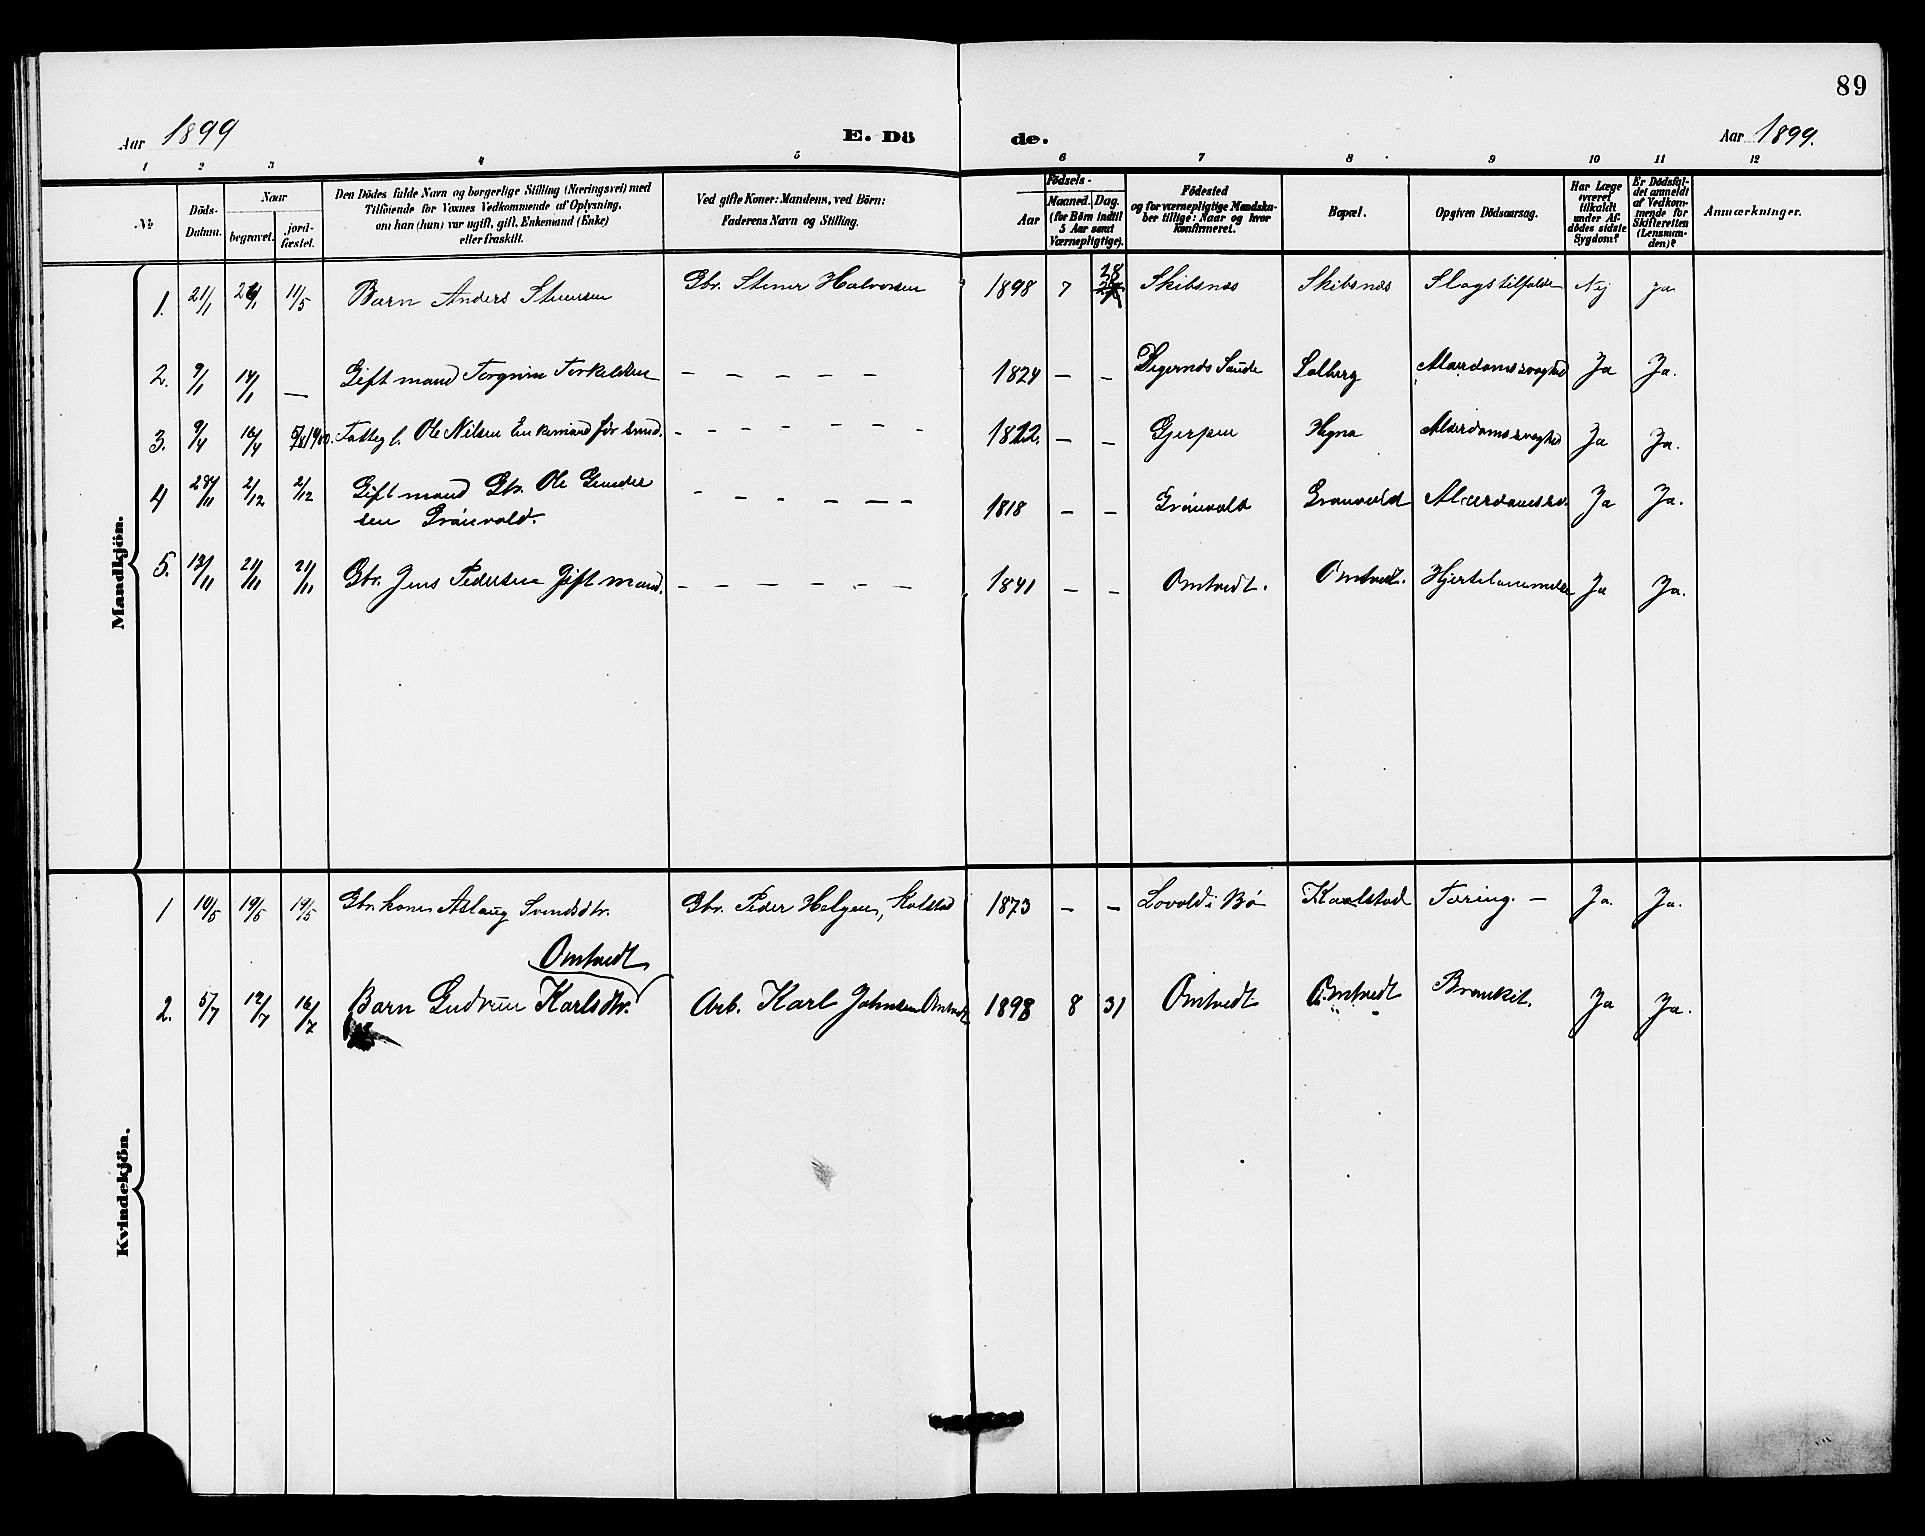 89
Aar 1899
E. Dö
de.
Aar 1899.
1 2 3 4 5 6 7 8 9 10 11 12
No
Döds-
Datum.
Naar
begravet.
jord-
fæstet.
Den Dödes fulde Navn og borgerlige Stilling (Næringsvei) med
Tilföiende for Voxnes Vedkommende af Oplysning,
om han (hun) var ugift, gift, Enkemand (Enke)
eller fraskilt.
Ved gifte Koner: Mandens, ved Börn:
Faderens Navn og Stilling.
Födsels-
Aar
Maaned. Dag.
(for Börn indtil
5 Aar samt
Værnepligtige).
Födested
og for værnepligtige Mandska-
ber tillige: Naar og hvor
konfirmeret.
Bopæl.
Opgiven Dödsaarsag.
Har Læge
været
tilkaldt
under Af-
dödes sidste
Sygdom?
Er Dödsfal-
det anmeldt
af Vedkom-
mende for
Skifteretten
(Lensman-
den)?
Anmærkninger.
Mandkjön.
1. 21/1 11/5 Barn Anders Stenersen Gbr. Stener Halvorsen 1898 7 28 Skibsnæs Skibsnæs Slagstilfælde Nej ja
2. 9/1 14/1 — Gift mand Torgrim Torkeldsen — — — — — 1824 — — Digernæs Saude Solberg Alderdomssvaghed Ja Ja.
3. 9/4 16/4 Fattigl. Ole Nilsen Enkemand før smed. — — — — — — 1822. — — Gjerpen Hegna Alderdomssvaghed Ja Ja.
4 28/11 2/12 2/12 Gift mand Gbr. Ole Gunder
sen Grönvold. — — — — — — 1818 — — Grönvold Grönvold Alderdomssv. Ja Ja.
5. 13/11 21/11 21/11 Gbr. Jens Pedersen Gift mand. — — — — — — 1841 — — Omtvedt. Omtvedt. Hjertelammelse Ja Ja.
Kvindekjön.
1 10/5 19/5 19/5 Gbr. kone Aslaug Svendsdtr. Gbr. Peder Helgesen, Kolstad 1873 — — Lovold i Bø Kaalstad Tæring. — Ja. Ja.
Omtvedt
2. 5/7 12/7 16/7 Barn Gudrun Karlsdtr. Arb. Karl Johnsen Omtvedt 1898 8 31 Omtvedt Omtvedt Bronkit. Ja Ja.